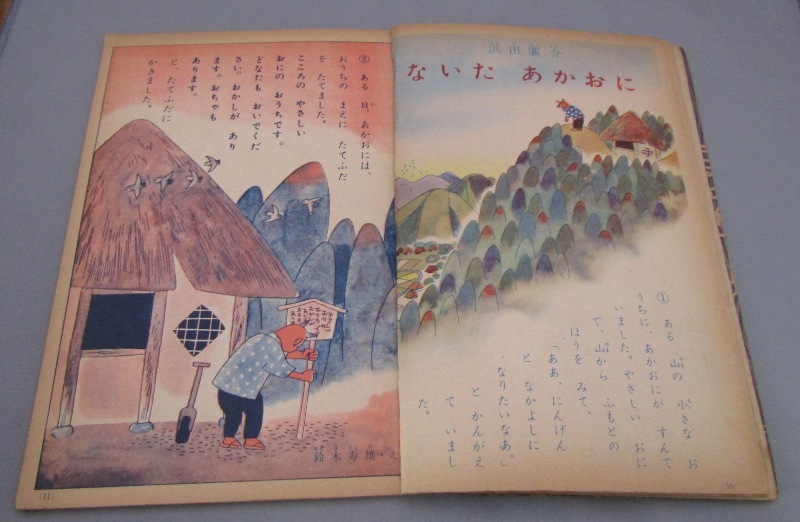 浜田廣介
ないた あかおに
① ある 山の 小さな お
うちに、あかおにが すんで
いました。やさしい おに
で、山から ふもとの
ほうを みて、
「ああ、にんげん
と なかよしに
なりたいなあ。」
と かんがえ
て いまし
た。
② ある 日、あかおには、
おうちの まえに たてふだ
を たてました。
こころの やさしい
おにの おうちです。
どなたも おいでくだ
さい。おかしが あり
ます。おちゃも
あります。
と、たてふだに
かきました。
鈴木寿雄・え
(11)